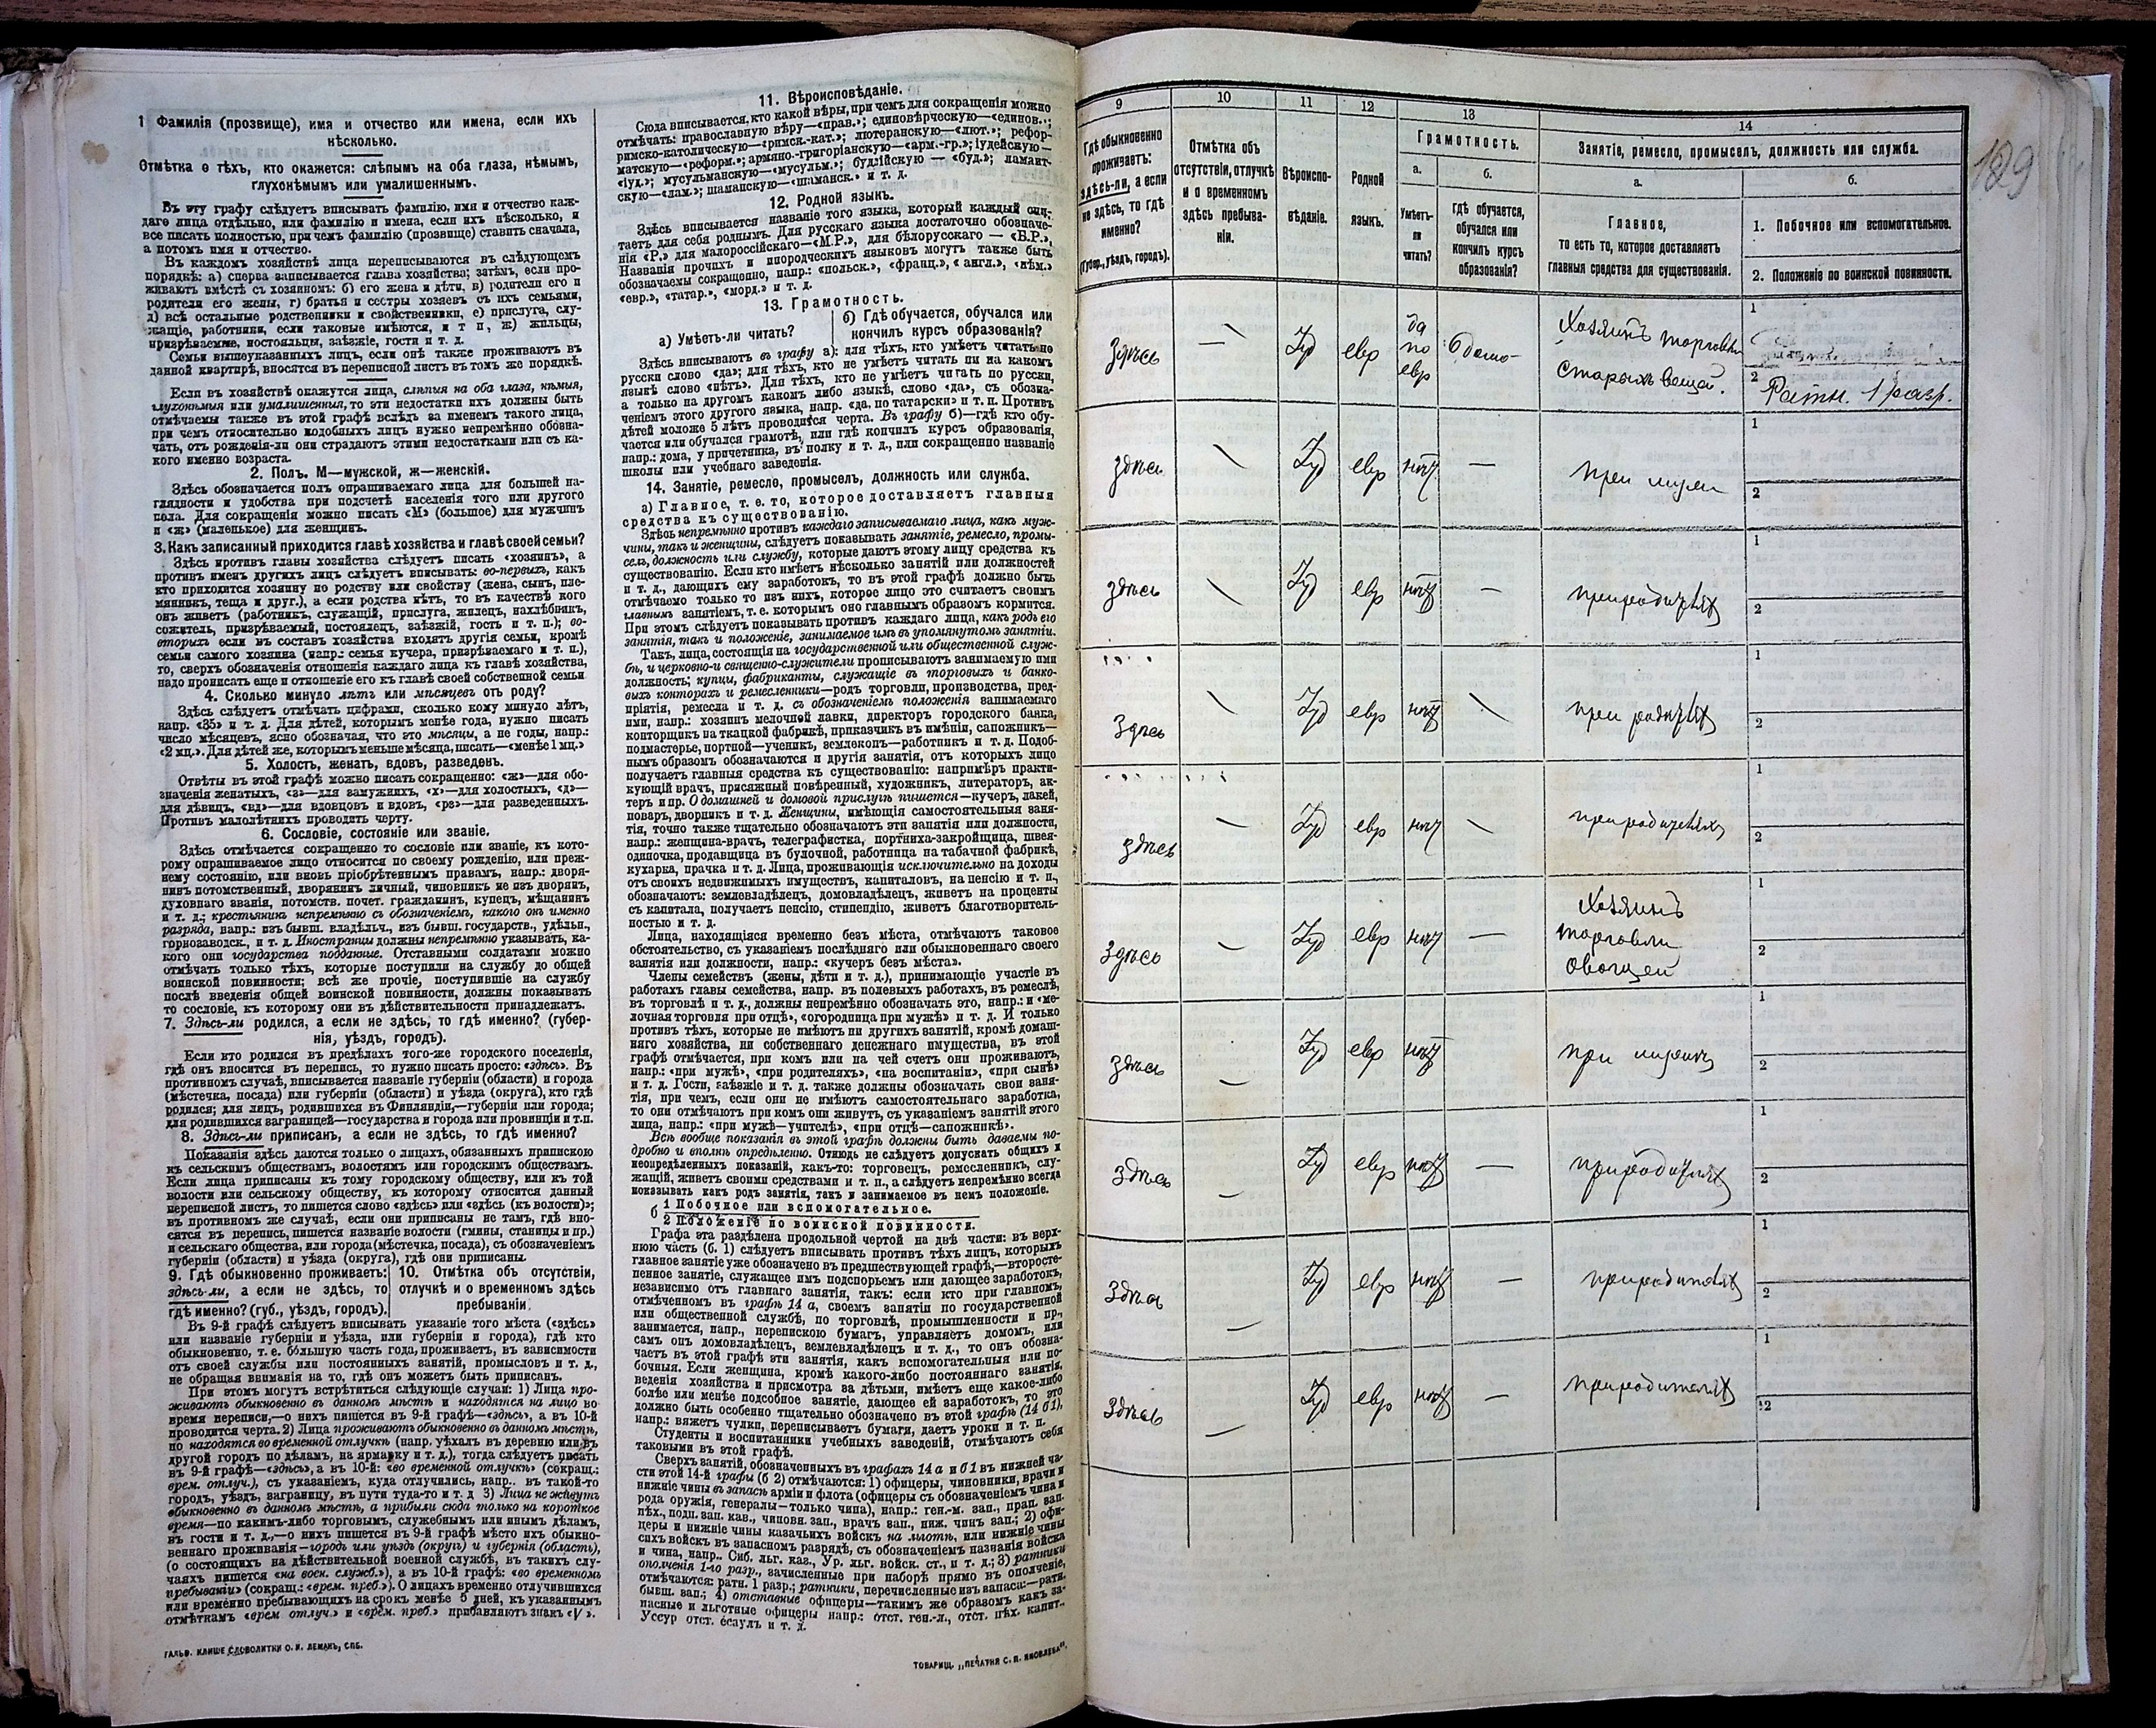 1 Фамилія (прозвище), имя и отчество или имена, если ихъ
нѣсколько.
Отмѣтка о тѣхъ, кто окажется: слѣпымъ на оба глаза, нѣмымъ,
глухонѣмымъ или умалишеннымъ.
Въ эту графу слѣдуетъ вписывать фамилію, имя и отчество каж-
даго лица отдѣльно, или фамилію и имена, если ихъ нѣсколько, и
все писать полностью, при чемъ фамилію (прозвище) ставить сначала,
а потомъ имя и отчество.
Въ каждомъ хозяйствѣ лица переписываются въ слѣдующемъ
порядкѣ: а) сперва записывается глава хозяйства; затѣмъ, если про-
живаютъ вмѣстѣ съ хозяиномъ: б) его жена и дѣти, в) родители его и
родители его жены, г) братья и сестры хозяевъ съ ихъ семьями,
д) всѣ остальные родственники и свойственники, е) прислуга, слу-
жащіе, работники, если таковые имѣются, и т п, ж) жильцы,
призрѣваемые, постояльцы, заѣзжіе, гости и т. д.
Семьи вышеуказанныхъ лицъ, если онѣ также проживаютъ въ
данной квартирѣ, вносятся въ переписной листъ въ томъ же порядкѣ.
Если въ хозяйствѣ окажутся лица, слѣпыя на оба глаза, нѣмыя,
глухонѣмыя или умалишенныя, то эти недостатки ихъ должны быть
отмѣчаемы также въ этой графѣ вслѣдъ за именемъ такого лица,
при чемъ относительно подобныхъ лицъ нужно непремѣнно обозна-
чать, отъ рожденія-ли они страдаютъ этими недостатками или съ ка-
кого именно возраста.
2. Полъ. М—мужской, ж—женскій.
Здѣсь обозначается полъ опрашиваемаго лица для большей на-
глядности и удобства при подсчетѣ населенія того или другого
пола. Для сокращенія можно писать «М» (большое) для мужчинъ
и «ж» (маленькое) для женщинъ.
3. Какъ записанный приходится главѣ хозяйства и главѣ своей семьи?
Здѣсь противъ главы хозяйства слѣдуетъ писать «хозяинъ», а
противъ именъ другихъ лицъ слѣдуетъ вписывать: во-первыхъ, какъ
кто приходится хозяину по родству или свойству (жена, сынъ, пле-
мянникъ, теща и друг.), а если родства нѣтъ, то въ качествѣ кого
онъ живетъ (работникъ, служащій, прислуга, жилецъ, нахлѣбникъ,
сожитель, призрѣваемый, постоялецъ, заѣзжій, гость и т. п.); во-
вторыхъ если въ составъ хозяйства входятъ другія семьи, кромѣ
семьи самого хозяина (напр.: семья кучера, призрѣваемаго и т. п.),
то, сверхъ обозначенія отношенія каждаго лица къ главѣ хозяйства,
надо прописать еще и отношеніе его къ главѣ своей собственной семьи
4. Сколько минуло лѣтъ или мѣсяцевъ отъ роду?
Здѣсь слѣдуетъ отмѣчать цифрами, сколько кому минуло лѣтъ,
напр. «35» и т. д. Для дѣтей, которымъ менѣе года, нужно писать
число мѣсяцевъ, ясно обозначая, что это мѣсяцы, а не годы, напр.:
«2 мц.». Для дѣтей же, которымъ меньше мѣсяца, писать—«менѣе 1 мц.»
5. Холостъ, женатъ, вдовъ, разведенъ.
Отвѣты въ этой графѣ можно писать сокращенно: «ж»—для обо-
значенія женатыхъ, «з»—для замужнихъ, «х»—для холостыхъ, «д»—
для дѣвицъ, «вд»—для вдовцовъ и вдовъ, «рз»—для разведенныхъ.
Противъ малолѣтнихъ проводить черту.
6. Сословіе, состояніе или званіе.
Здѣсь отмѣчается сокращенно то сословіе или званіе, къ кото-
рому опрашиваемое лицо относится по своему рожденію, или преж-
нему состоянію, или вновь пріобрѣтеннымъ правамъ, напр.: дворя-
нинъ потомственный, дворянинъ личный, чиновникъ не изъ дворянъ,
духовнаго званія, потомств. почет. гражданинъ, купецъ, мѣщанинъ
и т. д.; крестьянинъ непремѣнно съ обозначеніемъ, какого онъ именно
разряда, напр.: изъ бывш. владѣльч., изъ бывш. государств., удѣльн.,
горнозаводск., и т. д. Иностранцы должны непремѣнно указывать, ка-
кого они государства подданные. Отставными солдатами можно
отмѣчать только тѣхъ, которые поступили на службу до общей
воинской повинности; всѣ же прочіе, поступившіе на службу
послѣ введенія общей воинской повинности, должны показывать
то сословіе, къ которому они въ дѣйствительности принадлежатъ.
7. Здѣсь-ли родился, а если не здѣсь, то гдѣ именно? (губер-
нія, уѣздъ, городъ).
Если кто родился въ предѣлахъ того-же городского поселенія,
гдѣ онъ вносится въ перепись, то нужно писать просто: «здѣсь». Въ
противномъ случаѣ, вписывается названіе губерніи (области) и города
(мѣстечка, посада) или губерніи (области) и уѣзда (округа), кто гдѣ
родился; для лицъ, родившихся въ Финляндіи,—губерніи или города;
для родившихся заграницей—государства и города или провинціи и т.п.
8. Здѣсь-ли приписанъ, а если не здѣсь, то гдѣ именно?
Показанія здѣсь даются только о лицахъ, обязанныхъ припискою
къ сельскимъ обществамъ, волостямъ или городскимъ обществамъ.
Если лица приписаны къ тому городскому обществу, или къ той
волости или сельскому обществу, къ которому относится данный
переписной листъ, то пишется слово «здѣсь» или «здѣсь (къ волости)»;
въ противномъ же случаѣ, если они приписаны не тамъ, гдѣ вно-
сятся въ перепись, пишется названіе волости (гмины, станицы и пр.)
и сельскаго общества, или города (мѣстечка, посада), съ обозначеніемъ
губерніи (области) и уѣзда (округа), гдѣ они приписаны.
9. Гдѣ обыкновенно проживаетъ:
здѣсь-ли, а если не здѣсь, то
гдѣ именно? (губ., уѣздъ, городъ).
10. Отмѣтка объ отсутствіи,
отлучкѣ и о временномъ здѣсь
пребываніи.
Въ 9-й графѣ слѣдуетъ вписывать указаніе того мѣста («здѣсь»
или названіе губерніи и уѣзда, или губерніи и города), гдѣ кто
обыкновенно, т. е. бо́льшую часть года, проживаетъ, въ зависимости
отъ своей службы или постоянныхъ занятій, промысловъ и т. д.,
не обращая вниманія на то, гдѣ онъ можетъ быть приписанъ.
При этомъ могутъ встрѣтиться слѣдующіе случаи: 1) Лица про-
живаютъ обыкновенно въ данномъ мѣстѣ и находятся на лицо во
время переписи,—о нихъ пишется въ 9-й графѣ—«здѣсь», а въ 10-й
проводится черта. 2) Лица проживаютъ обыкновенно въ данномъ мѣстѣ,
но находятся во временной отлучкѣ (напр. уѣхалъ въ деревню или въ
другой городъ по дѣламъ, на ярмарку и т. д.), тогда слѣдуетъ писать
въ 9-й графѣ—«здѣсь», а въ 10-й: «во временной отлучкѣ» (сокращ.:
врем. отлуч.), съ указаніемъ, куда отлучились, напр.. въ такой-то
городъ, уѣздъ, заграницу, въ пути туда-то и т. д 3) Лица не живутъ
обыкновенно въ данномъ мѣстѣ, а прибыли сюда только на короткое
время—по какимъ-либо торговымъ, служебнымъ или инымъ дѣламъ,
въ гости и т. д.,—о нихъ пишется въ 9-й графѣ мѣсто ихъ обыкно-
веннаго проживанія—городъ или уѣздъ (округъ) и губернія (область),
(о состоящихъ на дѣйствительной военной службѣ, въ такихъ слу-
чаяхъ пишется «на воен. служб.»), а въ 10-й графѣ: «во временномъ
пребываніи» (сокращ.: «врем. преб.»). О лицахъ временно отлучившихся
или временно пребывающихъ на срокъ менѣе 5 дней, къ указаннымъ
отмѣткамъ «врем отлуч.» и «врем. преб.» прибавляютъ знакъ «V».
ГАЛЬВ. КЛИШЕ СЛОВОЛИТНИ О. И. ЛЕМАНЪ, СПБ.
11. Вѣроисповѣданіе.
Сюда вписывается, кто какой вѣры, при чемъ для сокращенія можно
отмѣчать: православную вѣру—«прав.»; единовѣрческую—«единов.»;
римско-католическую—«римск.-кат.»; лютеранскую—«лют.»; рефор-
матскую—«реформ.»; армяно.-григоріанскую—«арм.-гр.»; іудейскую—
«іуд.»; мусульманскую—«мусульм.»; буддійскую — «буд.»; ламаит-
скую—«лам.»; шаманскую—«шаманск.» и т. д.
12. Родной языкъ.
Здѣсь вписывается названіе того языка, который каждый счи-
таетъ для себя роднымъ. Для русскаго языка достаточно обозначе-
нія «Р.» для малороссійскаго—«М.Р.», для бѣлорусскаго — «Б.Р.»,
Названія прочихъ и инородческихъ языковъ могутъ также быть
обозначаемы сокращенно, напр.: «польск.», «франц.», « англ.», «нѣм.»
«евр.», «татар.», «морд.» и т. д.
13. Грамотность.
а) Умѣетъ-ли читать?
б) Гдѣ обучается, обучался или
кончилъ курсъ образованія?
Здѣсь вписываютъ въ графу а): для тѣхъ, кто умѣетъ читать по
русски слово «да»; для тѣхъ, кто не умѣетъ читать ни на какомъ
языкѣ слово «нѣтъ». Для тѣхъ, кто не умѣетъ читать по русски,
а только на другомъ какомъ либо языкѣ, слово «да», съ обозна-
ченіемъ этого другого языка, напр. «да, по татарски» и т. п. Противъ
дѣтей моложе 5 лѣтъ проводится черта. Въ графу б)—гдѣ кто обу-
чается или обучался грамотѣ, или гдѣ кончилъ курсъ образованія,
напр.: дома, у причетника, въ полку и т. д., или сокращенно названіе
школы или учебнаго заведенія.
14. Занятіе, ремесло, промыселъ, должность или служба.
а) Главное, т. е. то, которое доставляетъ главныя
средства къ существованію.
Здѣсь непремѣнно противъ каждаго записываемаго лица, какъ муж-
чины, такъ и женщины, слѣдуетъ показывать занятіе, ремесло, промы-
селъ, должность или службу, которые даютъ этому лицу средства къ
существованію. Если кто имѣетъ нѣсколько занятій или должностей
и т. д., дающихъ ему заработокъ, то въ этой графѣ должно быть
отмѣчаемо только то изъ нихъ, которое лицо это считаетъ своимъ
главнымъ занятіемъ, т. е. которымъ оно главнымъ образомъ кормится.
При этомъ слѣдуетъ показывать противъ каждаго лица, какъ родъ его
занятія, такъ и положеніе, занимаемое имъ въ упомянутомъ занятіи.
Такъ, лица, состоящія на государственной или общественной служ-
бѣ, и церковно-и священно-служители прописываютъ занимаемую ими
должность; купцы, фабриканты, служащіе въ торговыхъ и банко-
выхъ конторахъ и ремесленники—родъ торговли, производства, пред-
пріятія, ремесла и т. д. съ обозначеніемъ положенія занимаемаго
ими, напр.: хозяинъ мелочной лавки, директоръ городского банка,
конторщикъ на ткацкой фабрикѣ, приказчикъ въ имѣніи, сапожникъ—
подмастерье, портной—ученикъ, землекопъ—работникъ и т. д. Подоб-
нымъ образомъ обозначаются и другія занятія, отъ которыхъ лицо
получаетъ главныя средства къ существованію: напримѣръ практи-
кующій врачъ, присяжный повѣренный, художникъ, литераторъ, ак-
теръ и пр. О домашней и домовой прислугѣ пишется—кучеръ, лакей,
поваръ, дворникъ и т. д. Женщины, имѣющія самостоятельныя заня-
тія, точно также тщательно обозначаютъ эти занятія или должности,
напр.: женщина-врачъ, телеграфистка, портниха-закройщица, швея-
одиночка, продавщица въ булочной, работница на табачной фабрикѣ,
кухарка, прачка и т. д. Лица, проживающія исключительно на доходы
отъ своихъ недвижимыхъ имуществъ, капиталовъ, на пенсію и т. п.,
обозначаютъ: землевладѣлец, домовладѣлецъ, живетъ на проценты
съ капитала, получаетъ пенсію, стипендію, живетъ благотворитель-
ностью и т. д.
Лица, находящіяся временно безъ мѣста, отмѣчаютъ таковое
обстоятельство, съ указаніемъ послѣдняго или обыкновеннаго своего
занятія или должности, напр.: «кучеръ безъ мѣста».
Члены семействъ (жены, дѣти и т. д.), принимающіе участіе въ
работахъ главы семейства, напр. въ полевыхъ работахъ, въ ремеслѣ,
въ торговлѣ и т. д., должны непремѣнно обозначать это, напр.: и «ме-
лочная торговля при отцѣ», «огородница при мужѣ» и т. д. И только
противъ тѣхъ, которые не имѣютъ ни другихъ занятій, кромѣ домаш-
няго хозяйства, ни собственнаго денежнаго имущества, въ этой
графѣ отмѣчается, при комъ или на чей счетъ они проживаютъ,
напр.: «при мужѣ», «при родителяхъ», «на воспитаніи», «при сынѣ»
и т. д. Гости, заѣзжіе и т. д. также должны обозначать свои заня-
тія, при чемъ, если они не имѣютъ самостоятельнаго заработка,
то они отмѣчаютъ при комъ они живутъ, съ указаніемъ занятій этого
лица, напр.: «при мужѣ—учителѣ», «при отцѣ—сапожникѣ».
Всѣ вообще показанія въ этой графѣ должны быть даваемы по-
дробно и вполнѣ опредѣленно. Отнюдь не слѣдуетъ допускать общихъ и
неопредѣленныхъ показаній, какъ-то: торговецъ, ремесленникъ, слу-
жащій, живетъ своими средствами и т. п., а слѣдуетъ непремѣнно всегда
показывать какъ родъ занятія, такъ и занимаемое въ немъ положеніе.
б 1 Побочное или вспомогательное.
2 Положеніе по воинской повинности.
Графа эта раздѣлена продольной чертой на двѣ части: въ верх-
нюю часть (б. 1) слѣдуетъ вписывать противъ тѣхъ лицъ, которыхъ
главное занятіе уже обозначено въ предшествующей графѣ,—второсте-
пенное занятіе, служащее имъ подспорьемъ или дающее заработокъ,
независимо отъ главнаго занятія, такъ: если кто при главномъ,
отмѣченномъ въ графѣ 14 а, своемъ занятіи по государственной
или общественной службѣ, по торговлѣ, промышленности и пр.,
занимается, напр., перепискою бумагъ, управляетъ домомъ, или
самъ онъ домовладѣлецъ, землевладѣлецъ и т. д., то онъ обозна-
чаетъ въ этой графѣ эти занятія, какъ вспомогательныя или по-
бочныя. Если женщина, кромѣ какого-либо постояннаго занятія,
веденія хозяйства и присмотра за дѣтьми, имѣетъ еще какое-либо
болѣе или менѣе подсобное занятіе, дающее ей заработокъ, то это
должно быть особенно тщательно обозначено въ этой графѣ (14 б1),
напр.: вяжетъ чулки, переписываетъ бумаги, даетъ уроки и т. п.
Студенты и воспитанники учебныхъ заведеній, отмѣчаютъ себя
таковыми въ этой графѣ.
Сверхъ занятій, обозначенныхъ въ графахъ 14 а и б1 въ нижней ча-
сти этой 14-й графы (б 2) отмѣчаются: 1) офицеры, чиновники, врачи и
нижніе чины въ запасѣ арміи и флота (офицеры съ обозначеніемъ чина и
рода оружія, генералы—только чина), напр.: ген.-м. зап., прап. зап.
пѣх., подп. зап. кав., чиновн. зап., врачъ зап., ниж. чинъ зап.; 2) офи-
церы и нижніе чины казачьихъ войскъ на льготѣ, или нижніе чины
сихъ войскъ въ запасномъ разрядѣ, съ обозначеніемъ названія войска
и чина, напр.. Сиб. льг. каз., Ур. льг. войск. ст., и т. д.; 3) ратники
ополченія 1-го разр., зачисленные при наборѣ прямо въ ополченіе,
отмѣчаются: ратн. 1 разр.; ратники, перечисленные изъ запаса:—ратн.
бывш. зап.; 4) отставные офицеры—такимъ же образомъ какъ за-
пасные и льготные офицеры напр.: отст. ген.-л., отст. пѣх. капит.,
Уссур отст. есаулъ и т. д.
ТОВАРИЩ. „ПЕЧАТНЯ С. П. ЯКОВЛЕВА“.
189
9 10 11 12 13 14
Гдѣ обыкновенно
проживаетъ:
здѣсь-ли, а если
не здѣсь, то гдѣ
именно?
(Губер., уѣздъ, городъ).
Отмѣтка объ
отсутствіи, отлучкѣ
и о временномъ
здѣсь пребыва-
ніи.
Вѣроиспо-
вѣданіе.
Родной
языкъ.
Грамотность.
а.
Умѣетъ-
ли
читать?
б.
Гдѣ обучается,
обучался или
кончилъ курсъ
образованія?
Занятіе, ремесло, промыселъ, должность или служба.
а.
Главное,
то есть то, которое доставляетъ
главныя средства для существованія.
б.
1. Побочное или вспомогательное.
2. Положеніе по воинской повинности.
здѣсь — Іуд евр да по евр дома Хозяинъ торговли старыхъ вещей. 1
2 Ратн. 1 разр.
здѣсь — Іуд евр нѣт — при мужи 1
2
здѣсь — Іуд евр нѣт — при родителях 1
2
здѣсь — Іуд евр нѣт — при родителях 1
2
здѣсь — Іуд евр нѣт — при родителях 1
2
здѣсь — Іуд евр нѣт — Хозяинъ торговли овощей 1
2
здѣсь — Іуд евр нѣт при 1
2
здѣсь — Іуд евр нѣт — при родителях 1
2
здѣсь — Іуд евр нѣт — при родителях 1
2
здѣсь — Іуд евр нѣт — при родителях 1
2